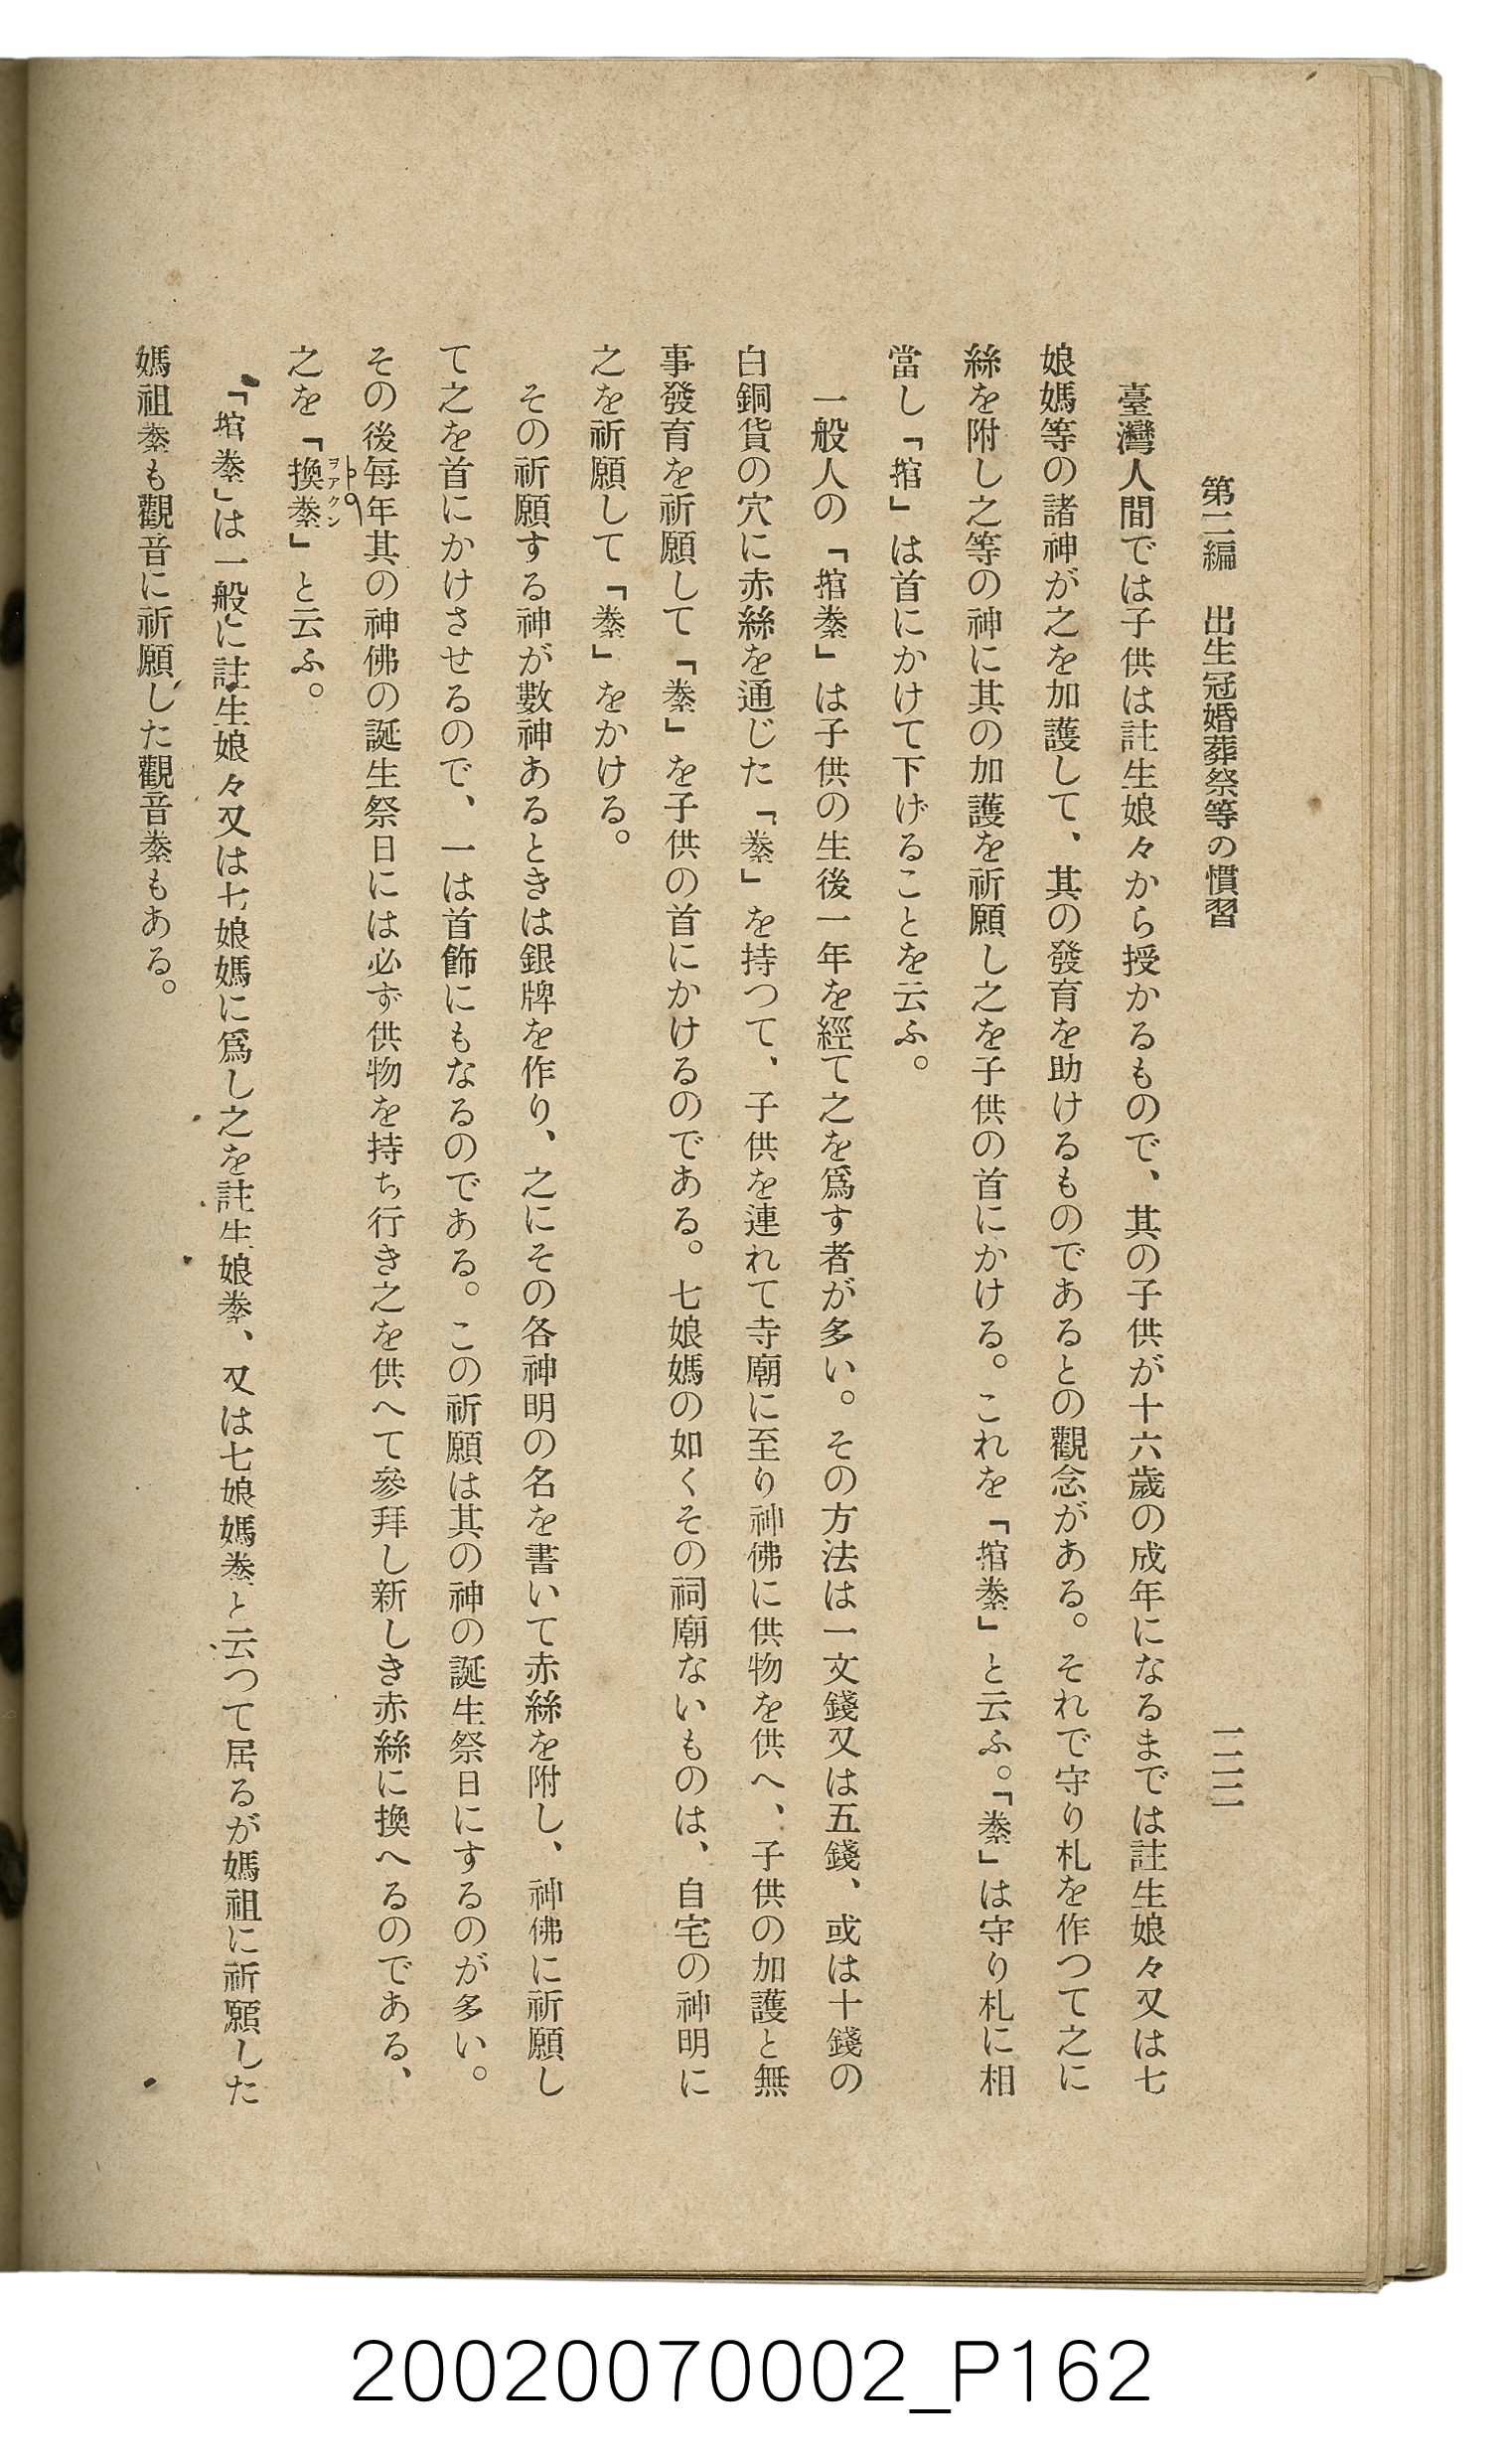 第二編　出生冠婚葬祭等の慣習
一二二
臺灣人間では子供は註生娘々から授かるもので、其の子供が十六歲の成年になるまでは註生娘々又は七
娘媽等の諸神が之を加護して、其の發育を助けるものであるとの觀念がある。それで守り札を作つて之に
絲を附し之等の神に其の加護を祈願し之を子供の首にかける。これを「捾絭」と云ふ。「絭」は守り札に相
當し「捾」は首にかけて下げることを云ふ。
一般人の「捾絭」は子供の生後一年を經て之を爲す者が多い。その方法は一文錢又は五錢、或は十錢の
白銅貨の穴に赤絲を通じた「絭」を持つて、子供を連れて寺廟に至り神佛に供物を供へ、子供の加護と無
事發育を祈願して「絭」を子供の首にかけるのである。七娘媽の如くその祠廟ないものは、自宅の神明に
之を祈願して「絭」をかける。
その祈願する神が數神あるときは銀牌を作り、之にその各神明の名を書いて赤絲を附し、神佛に祈願し
て之を首にかけさせるので、一は首飾にもなるのである。この祈願は其の神の誕生祭日にするのが多い。
その後每年其の神佛の誕生祭日には必ず供物を持ち行き之を供へて參拜し新しき赤絲に換へるのである、
之を「換絭」と云ふ。
ヲアクン
「捾絭」は一般に註生娘々又は七娘媽に爲し之を註生娘絭、又は七娘媽絭と云つて居るが媽祖に祈願した
媽祖絭も觀音に祈願した觀音絭もある。
20020070002_P162